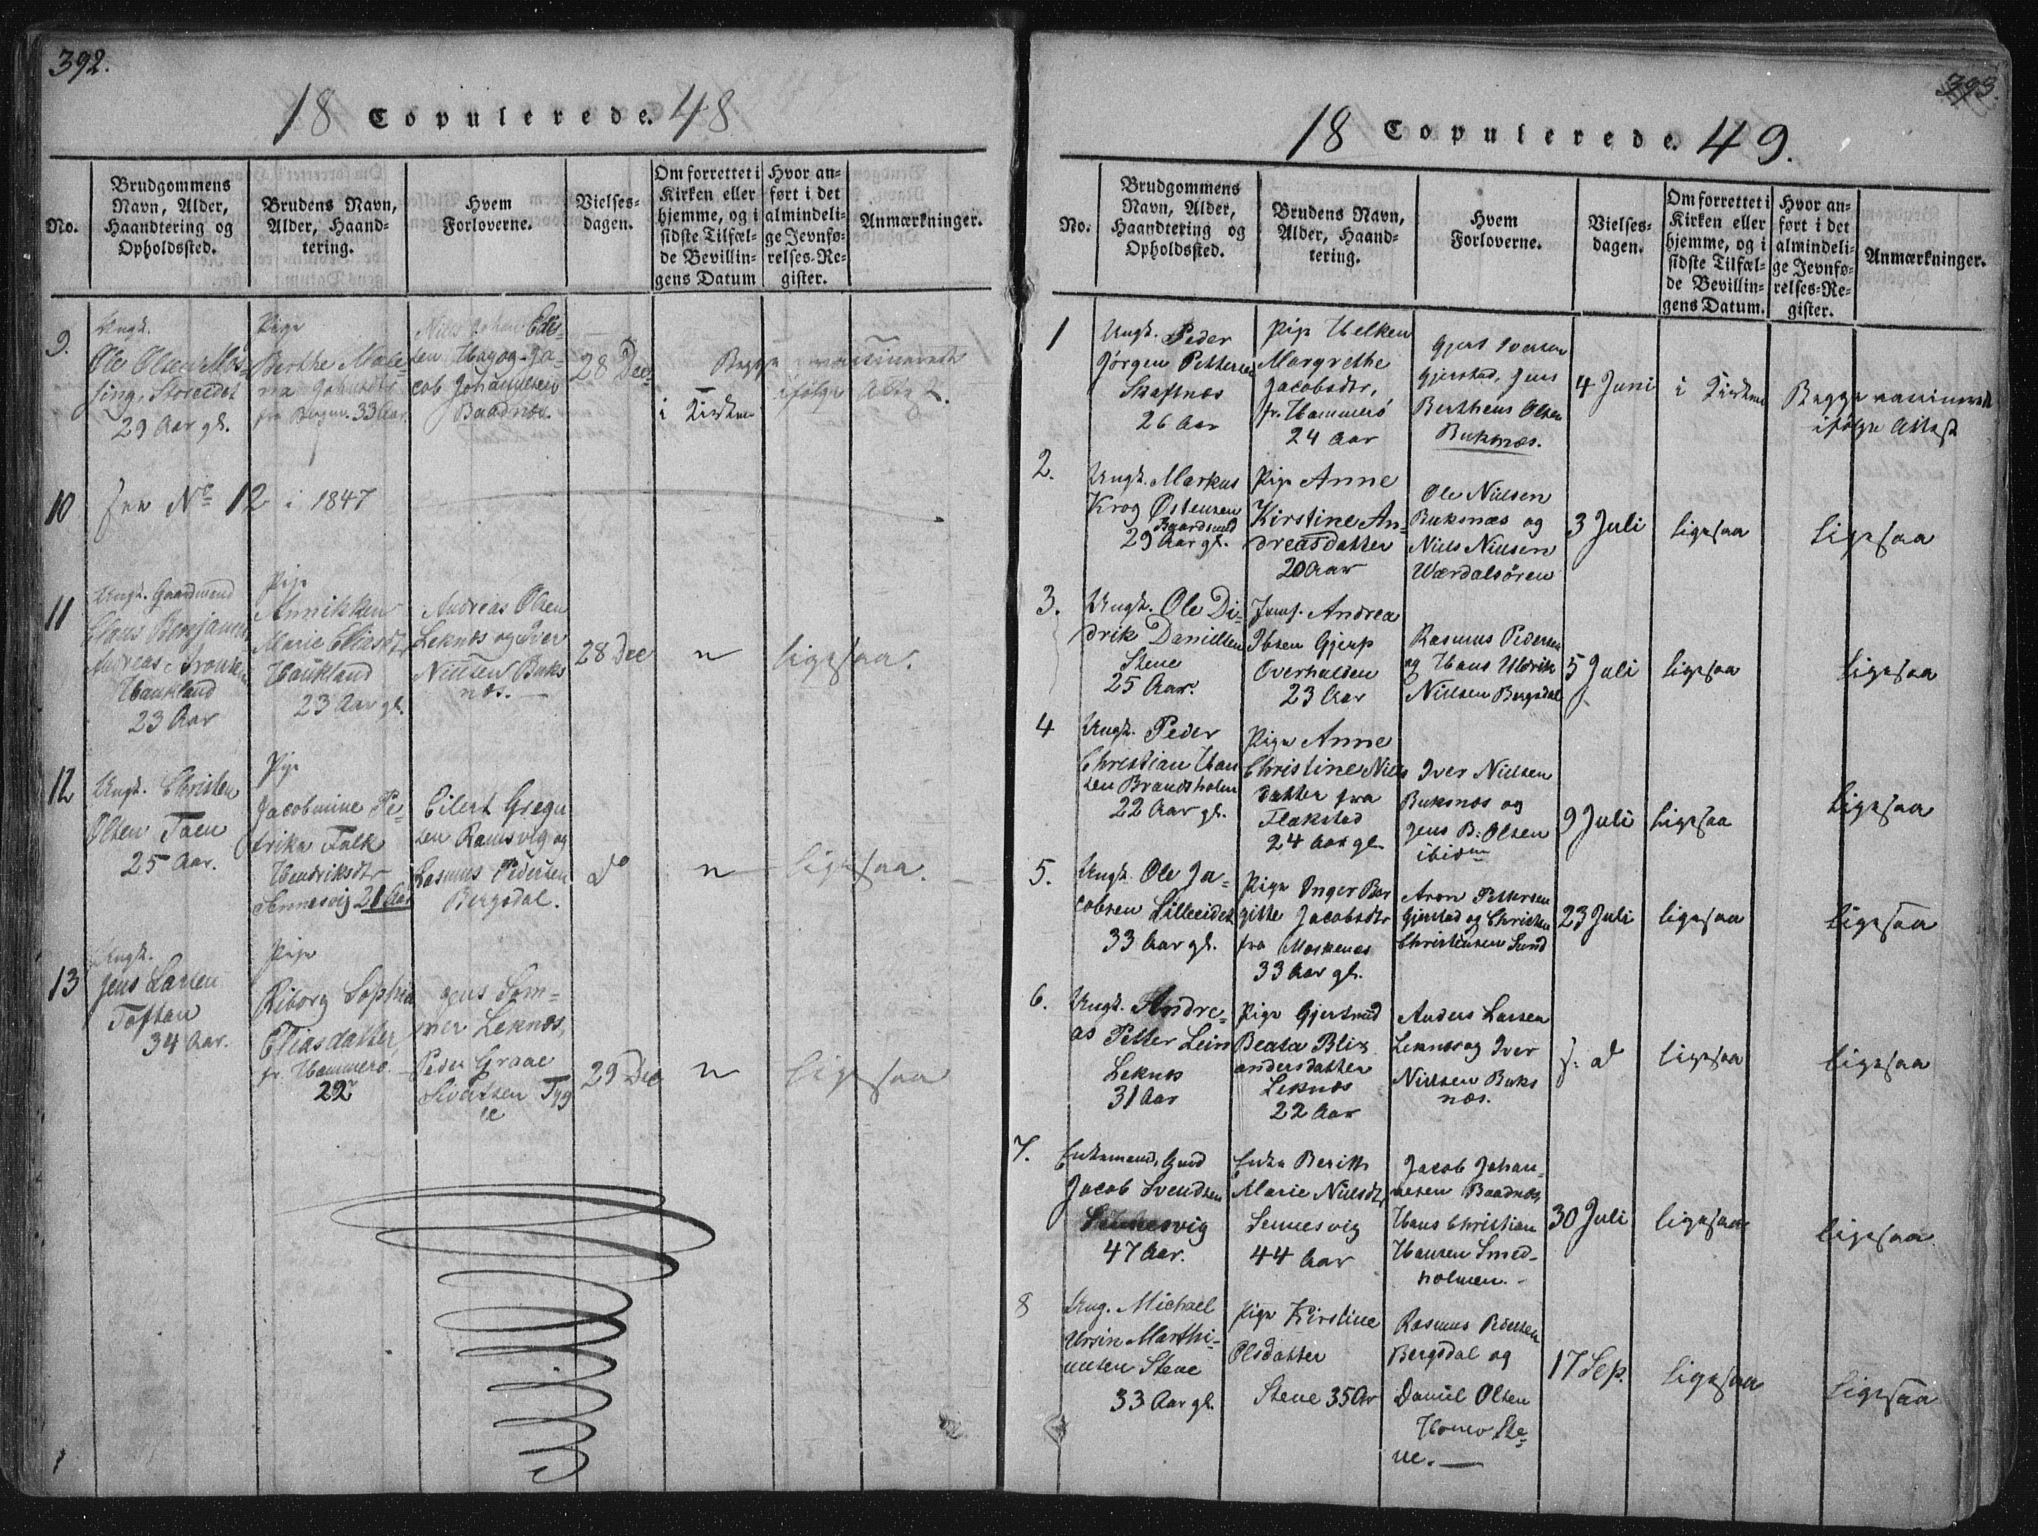 392.
18 Copulerede. 48
No.
Brudgommens
Navn, Alder,
Haandtering og
Opholdssted.
Brudens Navn,
Alder, Haand-
tering.
Hvem
Forloverne.
Vielses-
dagen.
Om forrettet i
Kirken eller
hjemme, og i
sidste Tilfæl-
de Bevillin-
gens Datum
Hvor an-
ført i det
almindeli-
ge Jevnfø-
relses-Re-
gister.
Anmærkninger.
9.
Ungk.
Ole Olsen
Storeidet
29 Aar gl.
Pige
Berthe Male
na
fra Bergen. 33 Aar
Niels Johan
sen Hag og Ja-
cob Johannesen
Baadnæs.
28 Dec
i Kirken
Begge vaccinerede
ifølge Attest.
10
see No 12 i 1847
11
Ungk. Gaardmand
Benjamin
Andreas
Haukland
23 Aar
Pige
Annikken
Marie Eliasdtr
Haukland
23 Aar gl.
Andreas Olsen
Leknæs og Iver
Nielsen Buks
næs.
28 Dec
"
ligesaa.
12
Ungk. Christen
Olsen Taen
25 Aar.
Pige
Jacobmine Pe-
trika Falk
Hendriksdtr
Sennesvig 21 Aar
Eilert Gregu
sen Ramsvig og
Rasmus Pedersen
Bergsdal.
d
"
ligesaa.
13
Ungk.
Jens Larsen
Toften
34 Aar.
Pige
Riborg Sophia
Eliasdatter,
fr. Hammerø
22
Jens Som-
mer Leknæs,
Peder Graae
Sivertsen Tyg
29 Dec
"
ligesaa
393.
18 Copulerede. 49.
No.
Brudgommens
Navn, Alder,
Haandtering og
Opholdssted.
Brudens Navn,
Alder, Haand-
tering.
Hvem
Forloverne.
Vielses-
dagen.
Om forrettet i
Kirken eller
hjemme, og i
sidste Tilfæl-
de Bevillin-
gens Datum.
Hvor an-
ført i det
almindeli-
ge Jevnfø-
relses-Re-
gister.
Anmærkninger.
1
Ungk. Peder
Jørgen Pettersen
Skaftnæs
26 Aar
Pige Helken
Margrethe
Jacobsdtr,
fr. Hammerø
24 Aar
Gjert Iversen
Gjerstad, Jens
Bertheus Olsen
Buksnæs.
4 Juni
i Kirken
Begge vaccinerede
ifølge Attest
2.
Ungk. Markus
Krog Østensen
Baardsund
29 Aar gl.
Pige Anne
Kirstine An-
dreasdatter
20 Aar
Ole Nielsen
Buksnæs og
Niels Nielsen
Wærdalsören
3 Juli
ligesaa
ligesaa
3.
Ungk. Ole Di-
drik Danielsen
Stene
25 Aar.
Jomf. Andrea
Ibsen Gjerp
Overhalden
23 Aar
Rasmus Pedersen
og Hans Uldrik
Nielsen Bergsdal
5 Juli
ligesaa
ligesaa
4
Ungk. Peder
Christian Han
sen Brandsholm
22 Aar gl.
Pige Anne
Christine Niels
datter fra
Flakstad
24 Aar gl.
Iver Nielsen
Buksnæs og
Jens B. Olsen
ibidm
9 Juli
ligesaa
ligesaa
5.
Ungk. Ole Ja-
cobsen Lilleeidet
33 Aar gl.
Pige Inger Bar
gitte Jacobsdtr
fra Moskenæs
33 Aar gl.
Aron Pettersen
Gjerstad og Christen
Christensen Sund
23 Juli
ligesaa
ligesaa
6.
Ungk. Andre-
as Petter Lein
Leknæs
31 Aar
Pige Gjertrud
Beata Blix
andersdatter
Leknæs
22 Aar
Anders Larsen
Leknæs og Iver
Nielsen Buks
næs.
s. d
ligesaa
ligesaa
7.
Enkemand,
Jacob Svendsen
Sennesvig
47 Aar.
Enke Berith
Marie Nielsdtr
Sennesvig
44 Aar
Jacob Johan-
nesen Baadnæs
Hans Christian
Hansen Smed-
holmen. -
30 Juli
ligesaa
ligesaa
8
Ung. Michael
Ursin Marthi-
nusen Stene
33 Aar gl.
Pige Kirstine
Olsdatter
Stene 35 Ar
Rasmus
Bergsdal og
Daniel Olsen
Ste-
ne. —
17 Sep.
ligesaa
ligesaa